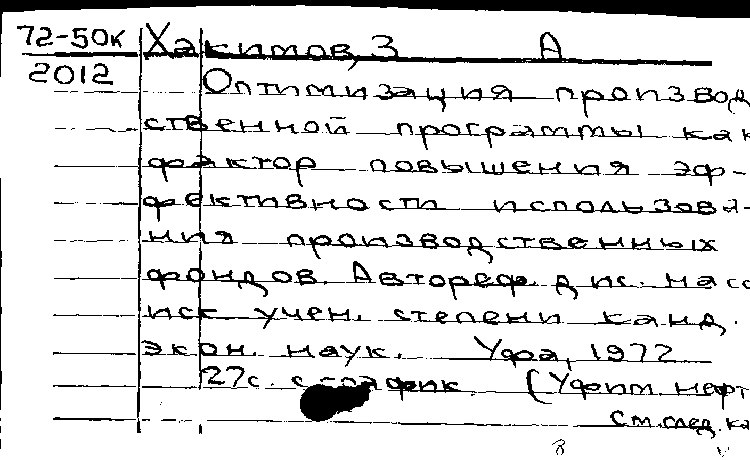 72-50к Хакимов, З А
2012 Оптимизация производ
ственной программы как
фактор повышения эф-
фективности использова-
ния производственных
фондов. Автореф. дис. на со
иск учен. степени канд.
экон. наук. Уфа, 1972
27с. с график (Уфим. нефт
См. след. ка